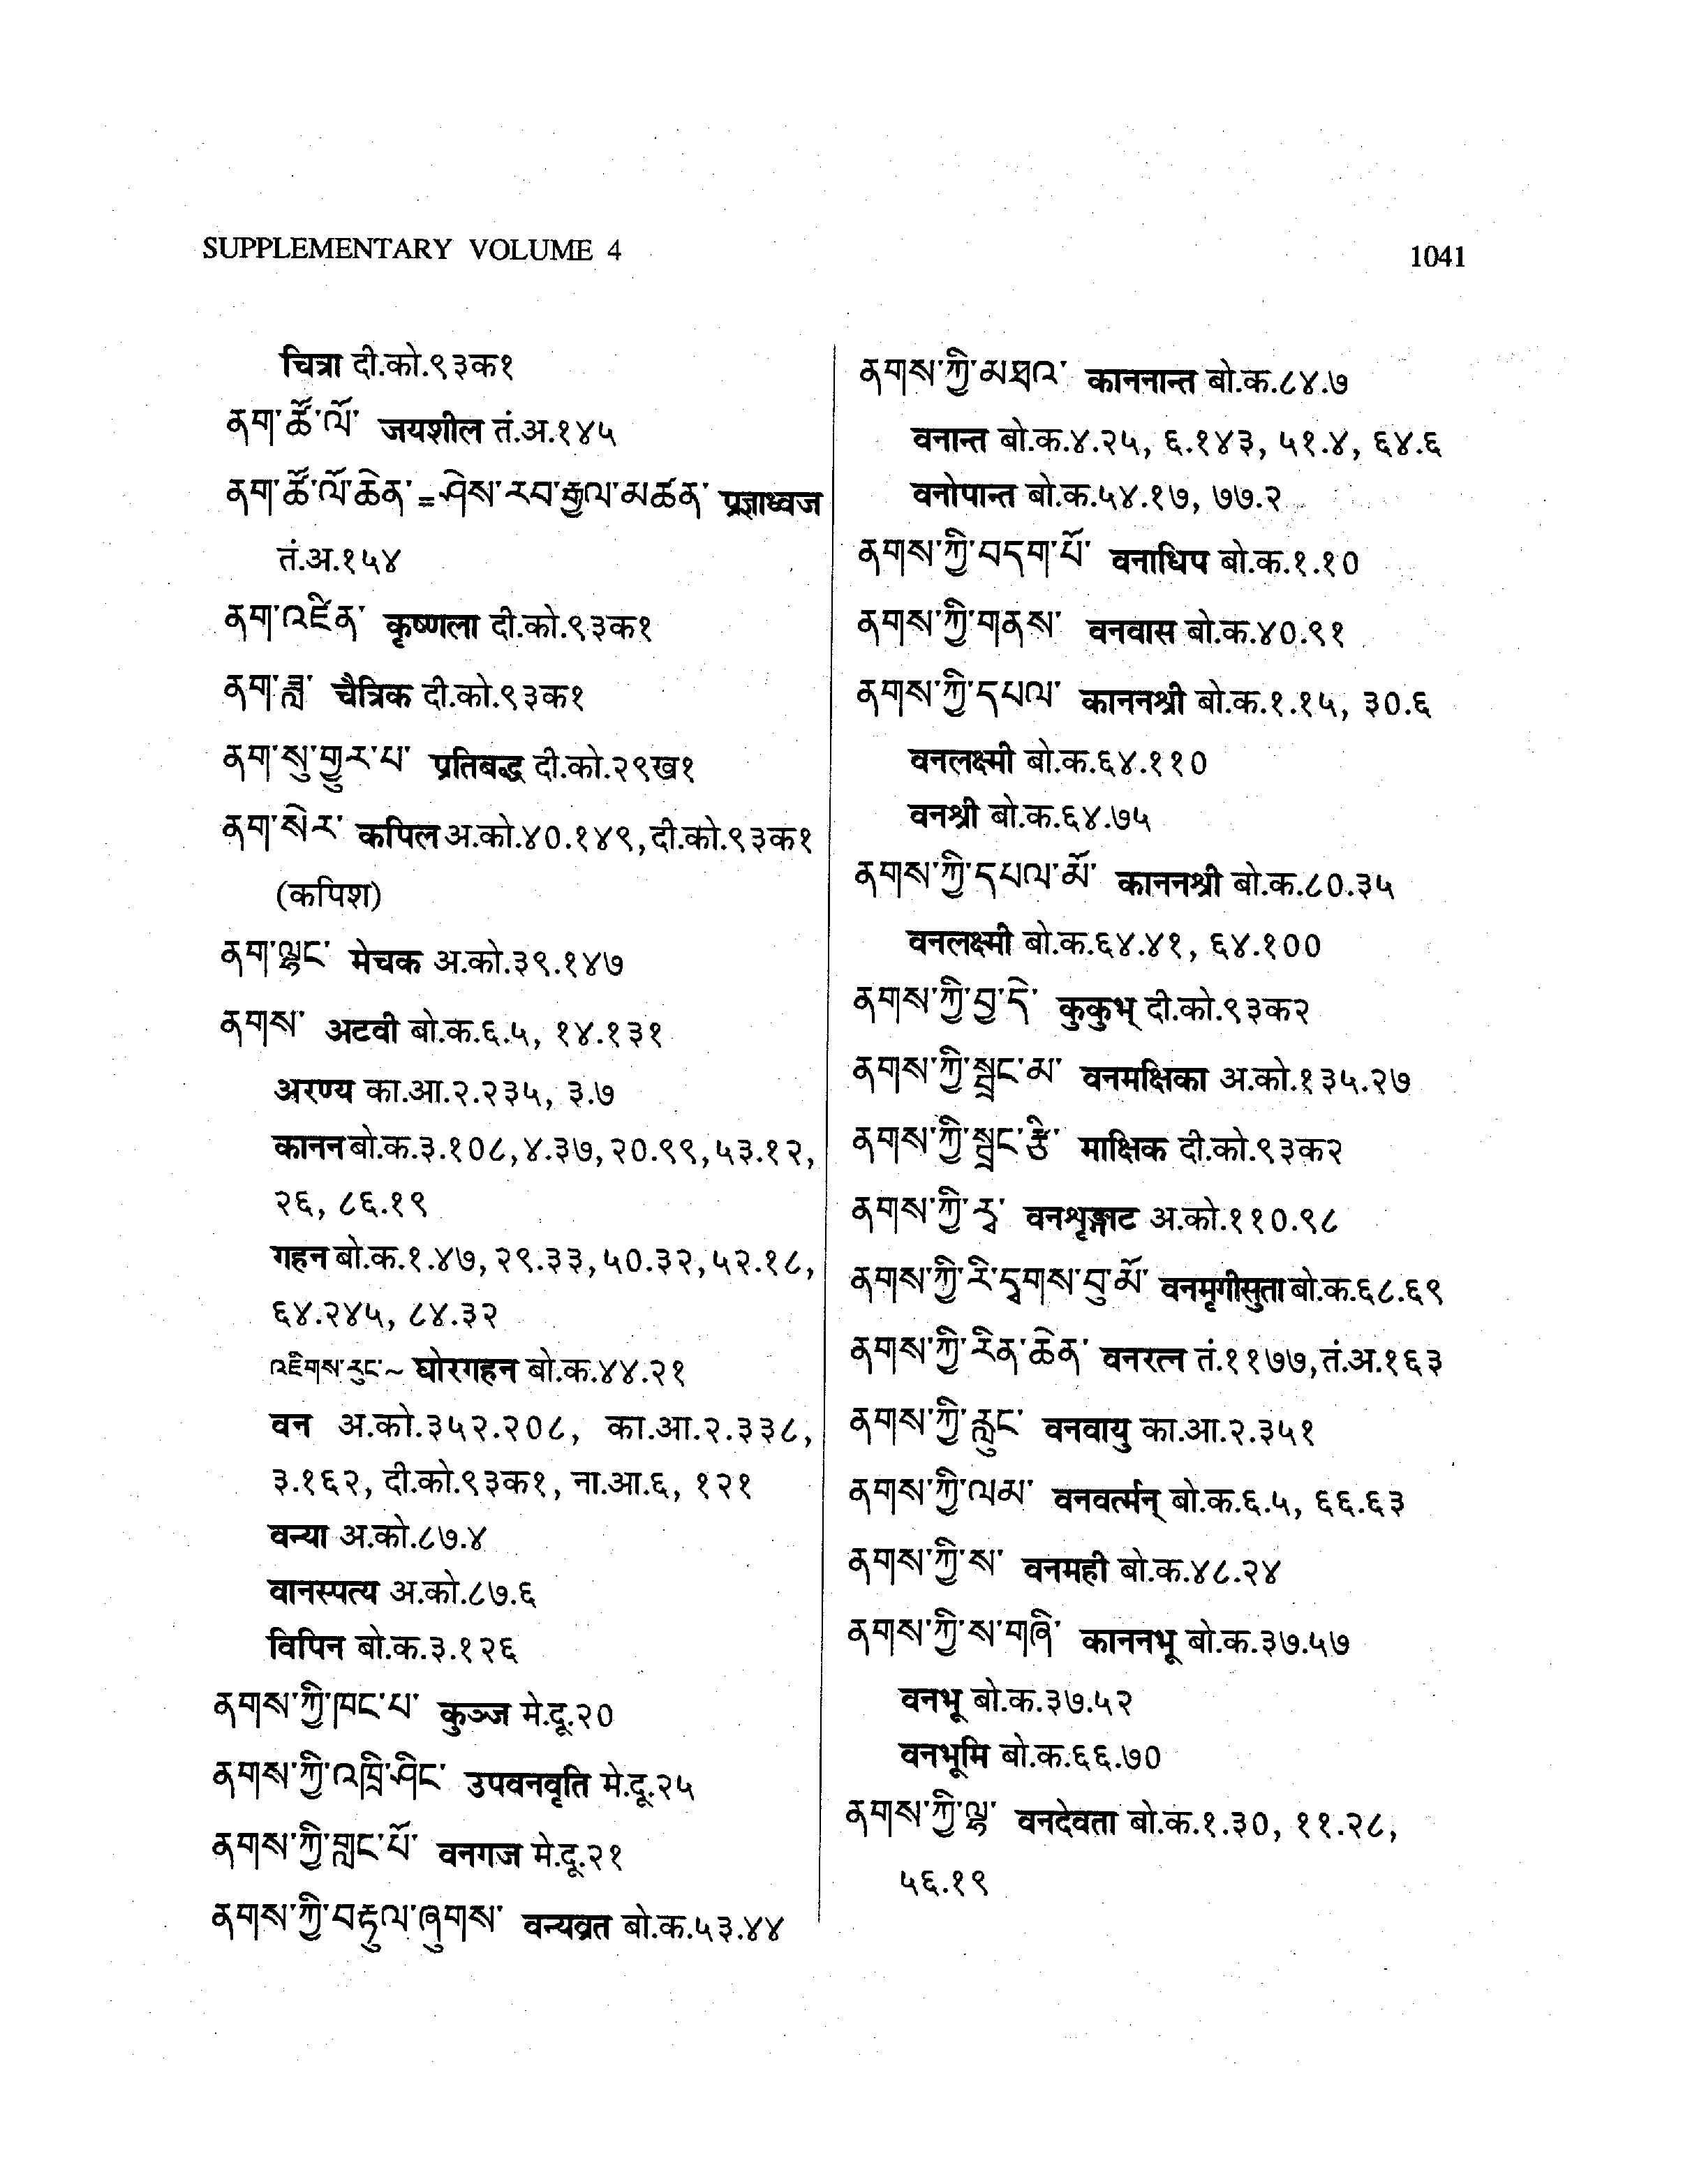 SUPPLEMENTARY VOLUME 4
1041
चित्रा दी.को.९३क१
ནག་ཚོ་ལོ་ जयशील तं.अ.१४५
ནག་ཚོ་ལོ་ཆེན་=ཤེས་རབ་རྒྱལ་མཚན་ प्रज्ञाध्वज
तं.अ.१५४
ནག་འཛིན་ कृष्णला दी.को.९३क१
ནག་ཟླ་ चैत्रिक दी.को.९३क१
ནག་སུ་གྱུར་པ་ प्रतिबद्ध दी.को.२९ख१
ནག་སེར་ कपिल अ.को.४०.१४९, दी.को.९३क१
(कपिश)
ནག་ལྗང་ मेचक अ.को.३९.१४७
ནགས་ अटवी बो.क.६.५, १४.१३१
अरण्य का.आ.२.२३५, ३.७
कानन बो.क.३.१०८, ४.३७, २०.९९, ५३.१२,
२६, ८६.१९
गहन बो.क.१.४७, २९.३३, ५०.३२, ५२.१८,
६४.२४५, ८४.३२
འཇིགས་རུང་~ घोरगहन बो.क.४४.२१
वन अ.को.३५२.२०८, का.आ.२.३३८,
३.१६२, दी.को.९३क१, ना.आ.६, १२१
वन्या अ.को.८७.४
वानस्पत्य अ.को.८७.६
विपिन बो.क.३.१२६
ནགས་ཀྱི་ཁང་པ་ कुञ्ज मे.दू.२०
ནགས་ཀྱི་འཁྲི་ཤིང་ उपवनवृति मे.दू.२५
ནགས་ཀྱི་གླང་པོ་ वनगज मे.दू.२१
ནགས་ཀྱི་བརྟུལ་ཞུགས་ वन्यव्रत बो.क.५३.४४
ནགས་ཀྱི་མཐའ་ काननान्त बो.क.८४.७
वनान्त बो.क.४.२५, ६.१४३, ५१.४, ६४.६
वनोपान्त बो.क.५४.१७, ७७.२
ནགས་ཀྱི་བདག་པོ་ वनाधिप बो.क.१.१०
ནགས་ཀྱི་གནས་ वनवास बो.क.४०.९१
ནགས་ཀྱི་དཔལ་ काननश्री बो.क.१.१५, ३०.६
वनलक्ष्मी बो.क.६४.११०
वनश्री बो.क.६४.७५
ནགས་ཀྱི་དཔལ་མོ་ काननश्री बो.क.८०.३५
वनलक्ष्मी बो.क.६४.४१, ६४.१००
ནགས་ཀྱི་བྱ་དེ་ कुकुभ् दी.को.९३क२
ནགས་ཀྱི་སྦྲང་མ་ वनमक्षिका अ.को.१३५.२७
ནགས་ཀྱི་སྦྲང་རྩི་ माक्षिक दी.को.९३क२
ནགས་ཀྱི་རྭ་ वनशृङ्गाट अ.को.११०.९८
ནགས་ཀྱི་རི་དྭགས་བུ་མོ་ वनमृगीसुता बो.क.६८.६९
ནགས་ཀྱི་རིན་ཆེན་ वनरत्न तं.११७७, तं.अ.१६३
ནགས་ཀྱི་རླུང་ वनवायु का.आ.२.३५१
ནགས་ཀྱི་ལམ་ वनवर्त्मन् बो.क.६.५, ६६.६३
ནགས་ཀྱི་ས་ वनमही बो.क.४८.२४
ནགས་ཀྱི་ས་གཞི་ काननभू बो.क.३७.५७
वनभू बो.क.३७.५२
वनभूमि बो.क.६६.७०
ནགས་ཀྱི་ལྷ་ वनदेवता बो.क.१.३०, ११.२८,
५६.१९